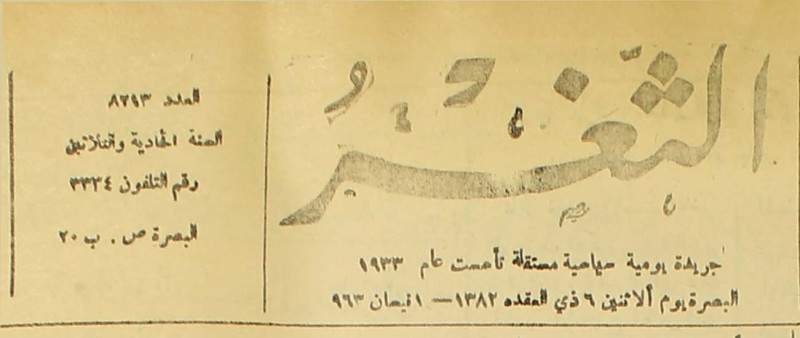 الثَّغْرُ
جريدة يومية سياسية مستقلة تأسست عام ١٩٣٣
البصرة يوم ألاثنين ٦ ذي العقده ١٣٨٢ — ١ نيسان ٩٦٣
العدد ٨٧٩٣
السنة الحادية والثلاثين
رقم التلفون ٣٣٣٤
البصرة ص . ب ٢٠